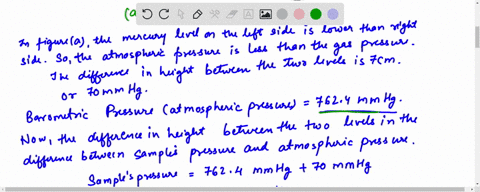 (a
In figure(a), the mercury level on the left side is lower than right
side. So, the atmospheric pressure is less than the gas pressur.
The difference in height between the two levels is 7cm.
or 70mm Hg.
Barometric Pressure (atmospheric pressure) = 762.4 mmHg.
Now, the difference in height between the two levels in the
difference between sample's pressure and atmospheric pressure.
Sample's pressure = 762.4 mmHg + 70 mmHg